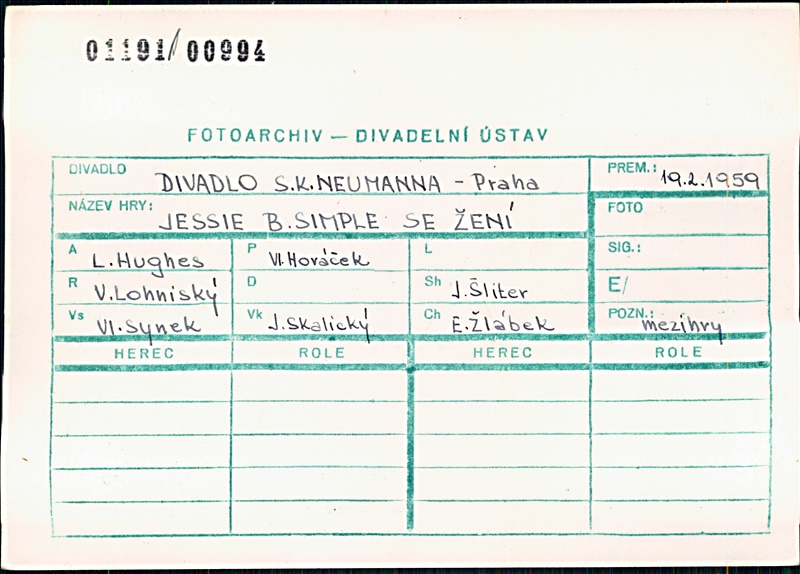 01191/00994
FOTOARCHIV — DIVADELNÍ ÚSTAV
DIVADLO DIVADLO S.K.NEUMANNA - Praha PREM.: 19.2.1959
NÁZEV HRY: JESSIE B.SIMPLE SE ŽENÍ FOTO
A L.Hughes P Vl.Horáček L SIG.:
R V.Lohniský D Sh J.Šliter E/
Vs Vl.Synek Vk J.Skalický Ch E.Žlábek POZN.: mezihry
HEREC ROLE HEREC ROLE